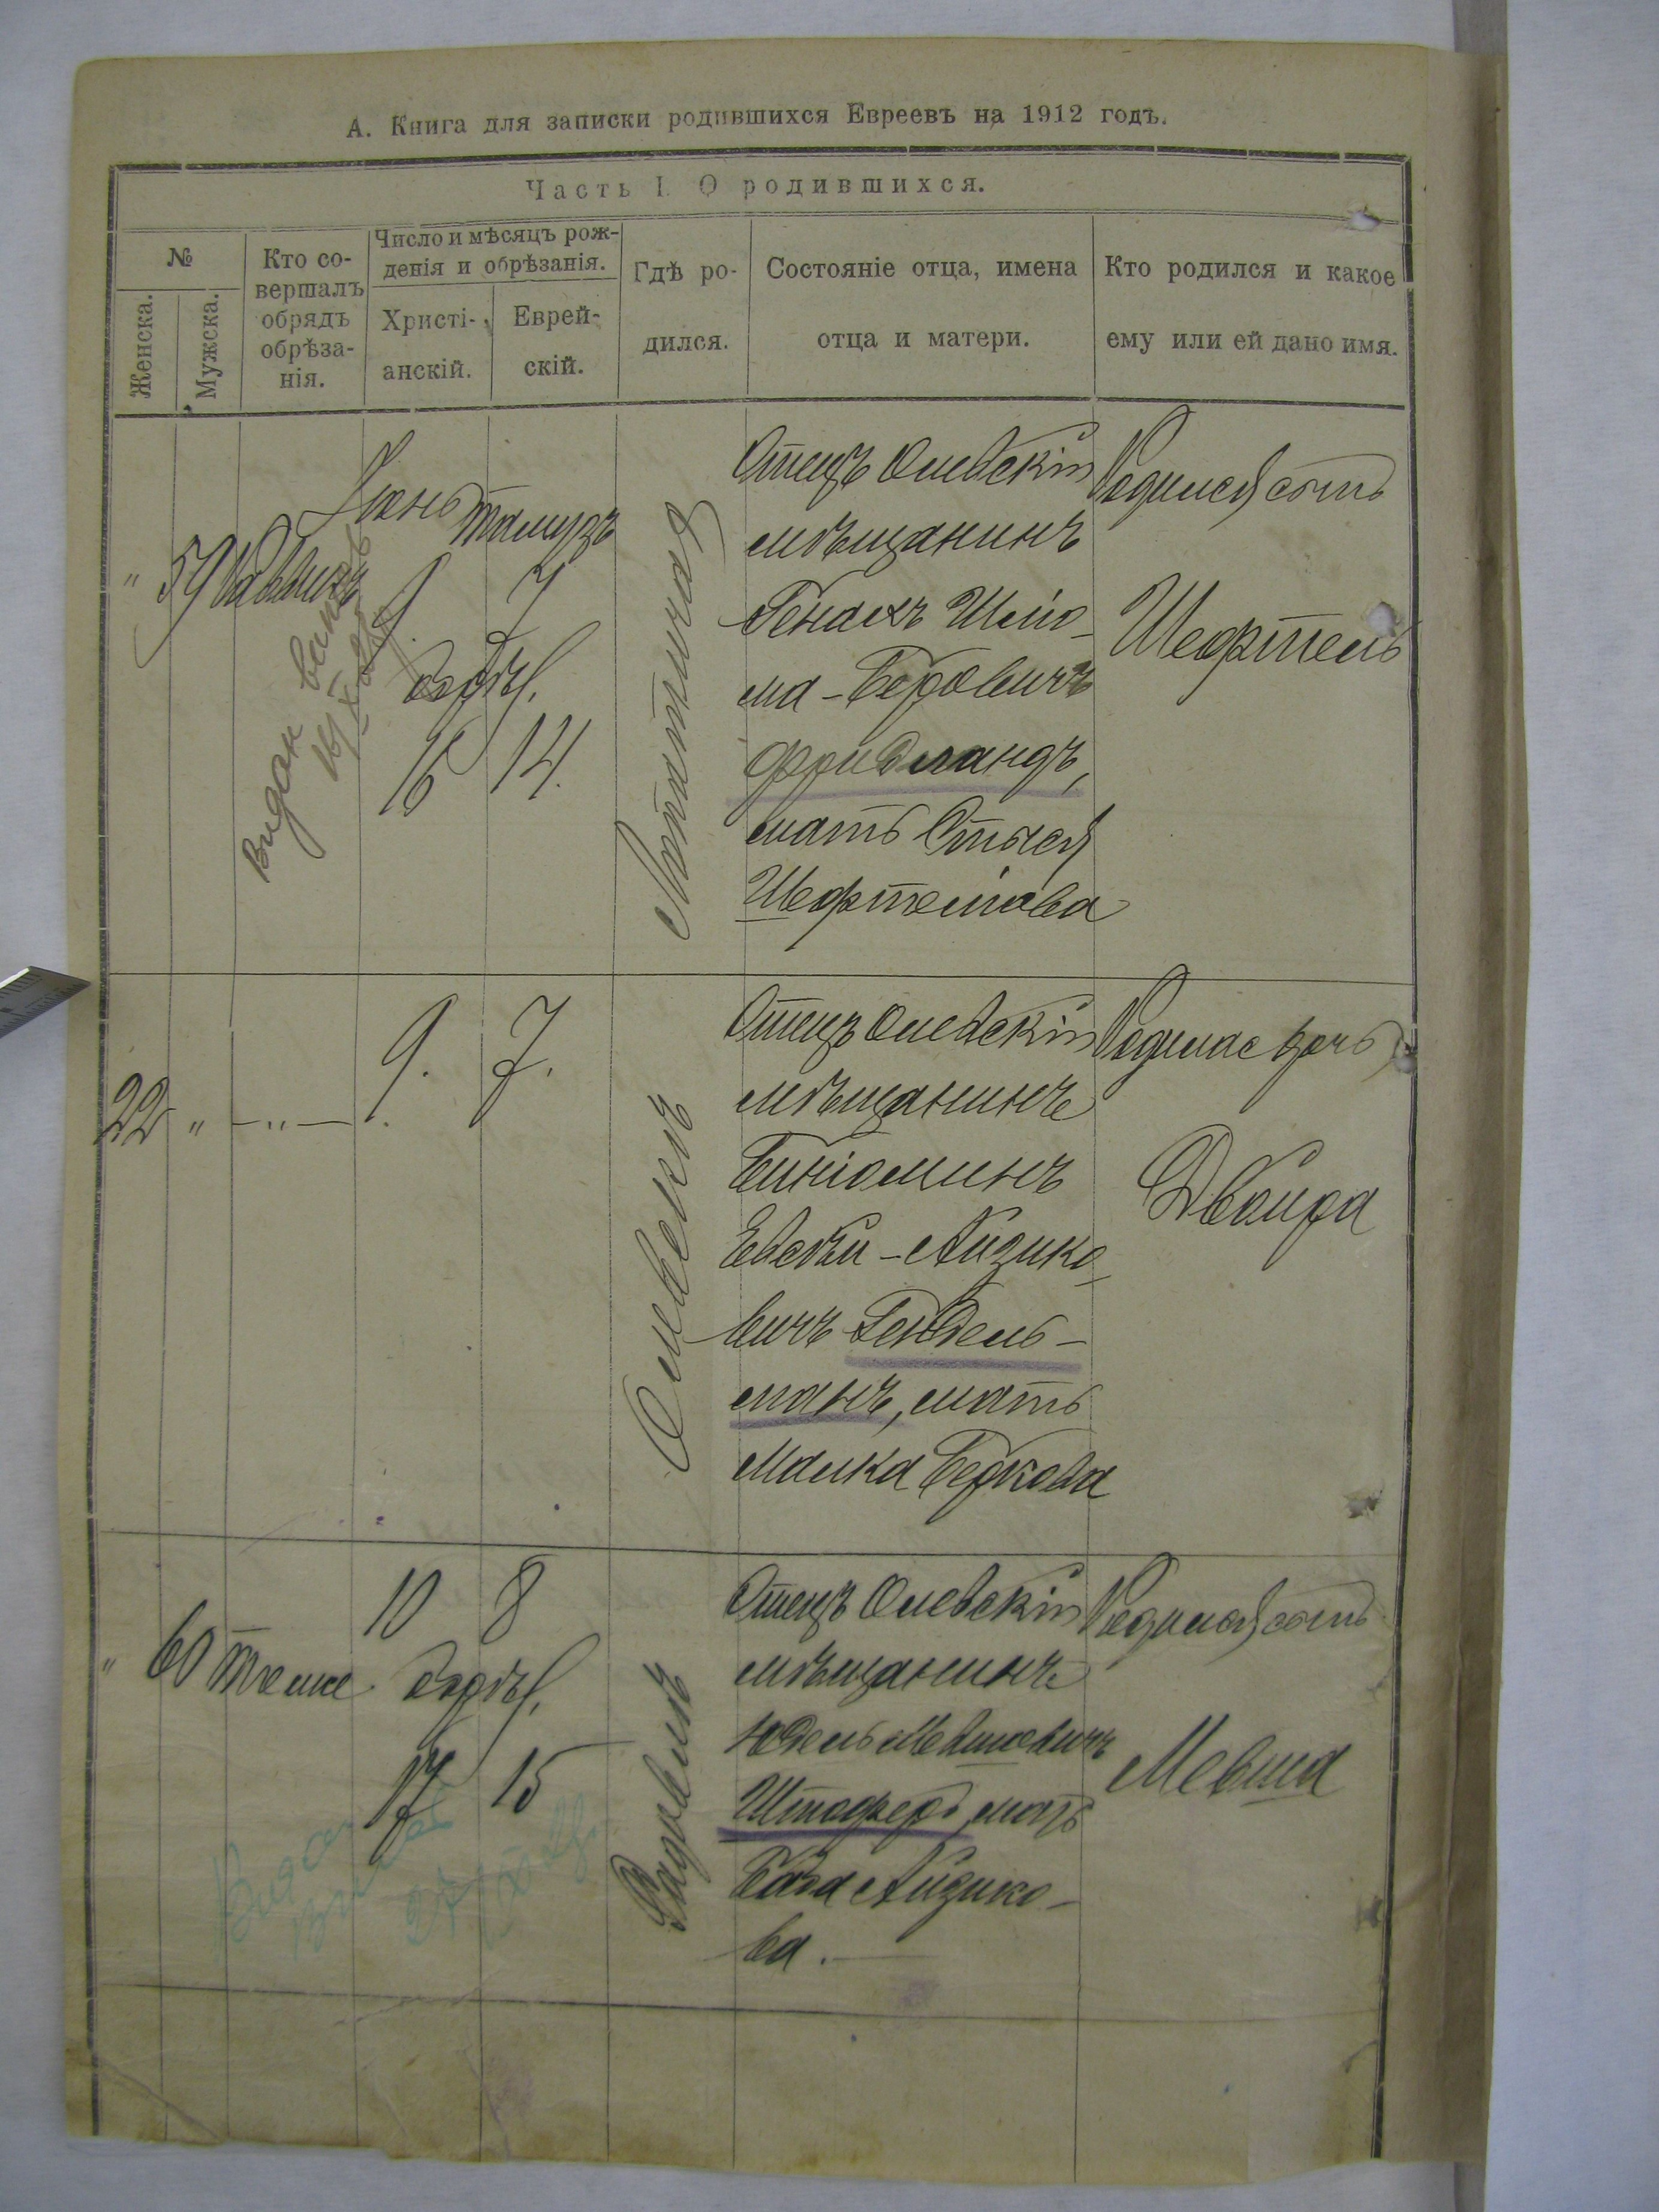 А. Книга для записки родившихся Евреевъ на 1912 годъ.
Часть I. О родившихся.
№
Женска.
Мужска.
Кто со-
вершалъ
обрядъ
обрѣза-
нія.
Число и мѣсяцъ рож-
денія и обрѣзанія.
Христі-
анскій.
Еврей-
скій.
Гдѣ ро-
дился.
Состояніе отца, имена
отца и матери.
Кто родился и какое
ему или ей дано имя.
" 59 Раввинъ
Видан
Іюнь Тамузъ
9. 7
обрѣз.
16 14.
Отецъ Олевскій
мѣщанинъ
Генахъ Шлио-
ма-Беровичъ
Фридландъ,
мать Стыся
Шефтелiова
Родился сынъ
Шефтель
22 " —"—
9. 7.
Олевскъ
Отецъ Олевскій
мѣщанинъ
Биніоминъ
Евсѣй-Айзико-
вичъ Гендель-
манъ, мать
Малка Беркова
Родилась дочь
Двойра
" 60 тоже
10 8
обрѣз.
17 15
Радовиль
Отецъ Олевскій
мѣщанинъ
Юдель Мевшовичъ
Штоферъ, мать
Айзико-
ва.
Родился сынъ
Мевша